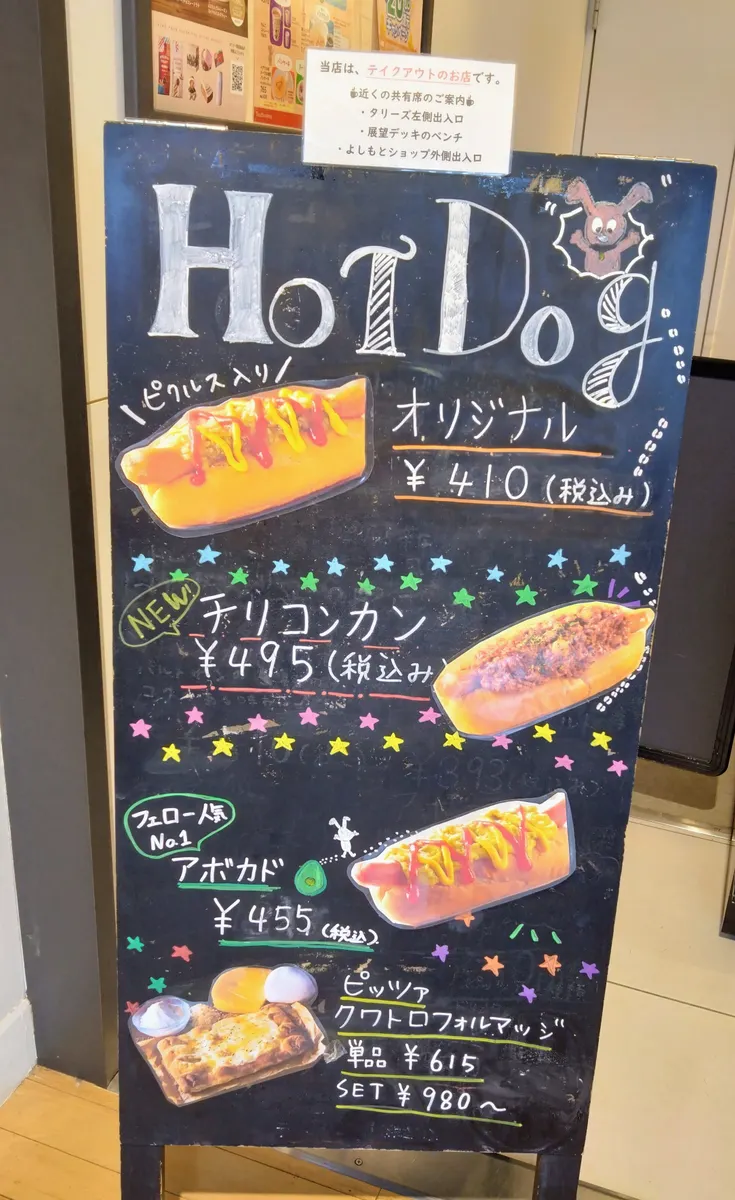 当店は、テイクアウトのお店です。
近くの共有席のご案内
・タリーズ左側出入口
・展望デッキのベンチ
・よしもとショップ外側出入口
HOT Dog
ピクルス入り
オリジナル
¥410(税込み)
NEW
チリコンカン
¥495(税込み)
フェロー人気
No.1
アボカド
¥455(税込)
ピッツァ
クワトロフォルマッジ
単品 ¥615
SET ¥980〜